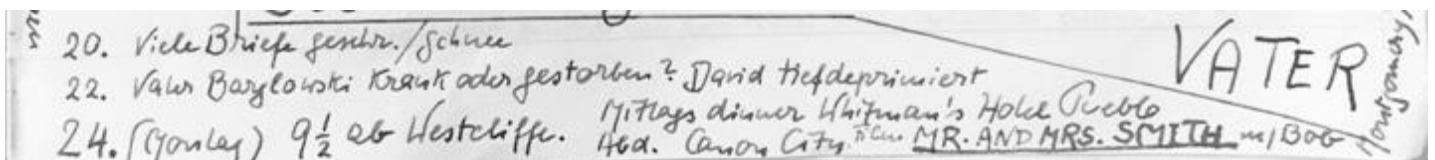 20. Viele Briefe geschr./Schnee
22. Vater Barylowski Krank oder gestorben? David tiefdeprimiert
24. (Monday) 9½ ab Westcliffe. Mittags dinner Whitman's Hotel Pueblo
Abd. Canon City Film MR. AND MRS. SMITH m/Bob
VATER
Montgomery,